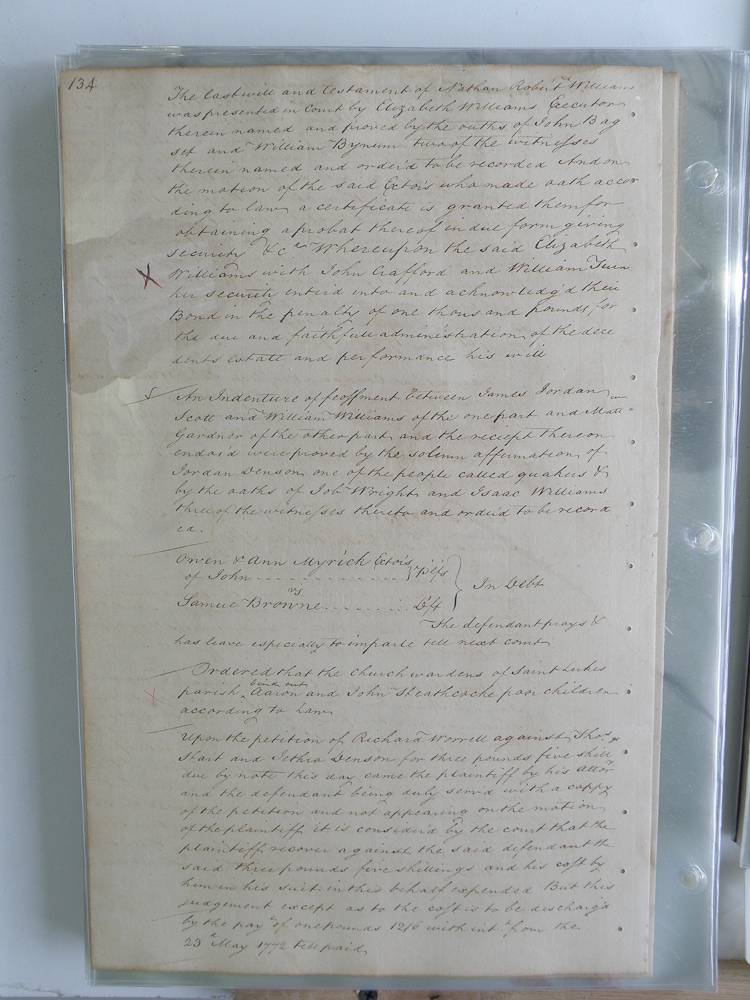 134
The last will and testament of Nathan Robert Williams
was presented in Court by Elizabeth Williams Executor
therein named and proved by the oaths of John Bag
set and William Bynum two of the witnesses
therein named and order'd to be recorded And on
the motion of the said Ector's who made oath accor
ding to law a certificate is granted them for
obtaining a probat thereof in due form giving
security &c Whereupon the said Elizabeth
Williams with John Crafford and William Turn
her security enter'd into and acknowledg'd their
Bond in the penalty of one thousand pounds for
the due and faithfull administration of the dece
dents estate and performance his will
An Indenture of feoffment between James Jordan
Scott and William Williams of the one part and Matt
Gardner of the other part and the receipt thereon
endors'd were proved by the solemn affirmation of
Jordan Denson one of the people called quakers &
by the oaths of Job Wright and Isaac Williams
three of the witnesses thereto and order'd to be record
ed.
Owen & Ann Myrick Ector's
of John Pl'fs
vs In Debt
Samuel Browne Dft
The defendant prays &
has leave especially to imparle till next court
Ordered that the church wardens of Saint Lukes
parish bind out Aaron and John Heathcocke poor children
according to Law
Upon the petition of Richard Worrell against Thos
Hart and Jethro Denson for three pounds five shill
due by note this day came the plaintiff by his attor
and the defendant being duly serv'd with a coppy
of the petition and not appearing on the motion
of the plaintiff it is consider'd by the court that the
plaintiff recover against the said defendant the
said three pounds five shillings and his cost by
him in his suit in this behalf expended But this
judgement except as to the cost is to be discharg'd
by the paymt of one pounds 12/6 with intt from the
23d May 1772 till paid